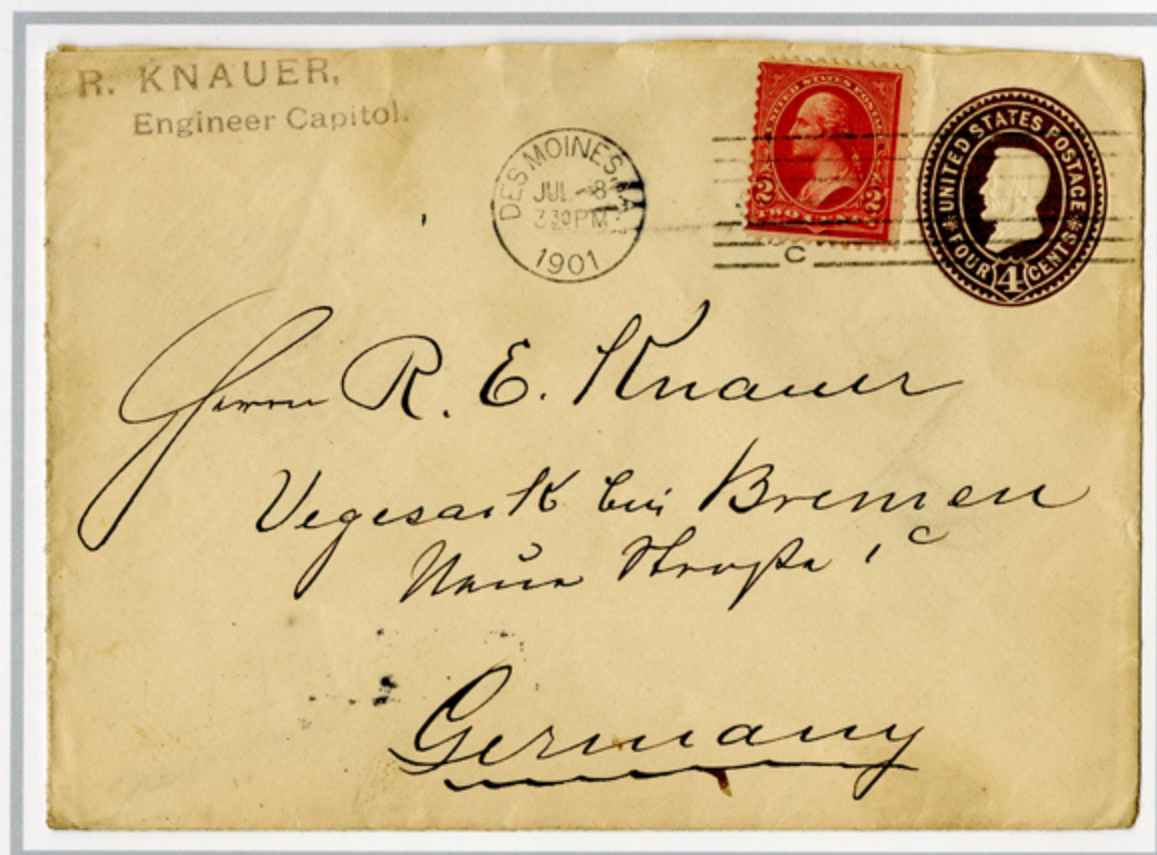 R. KNAUER,
Engineer Capitol.
DES MOINES, IA
JUL - 8
3 30 PM
1901
UNITED STATES POSTAGE
2 2
TWO CENTS
C
UNITED STATES POSTAGE
FOUR 4 CENTS
Herrn R. E. Knauer
Vegesack bei Bremen
Neue Straße 1 c
Germany